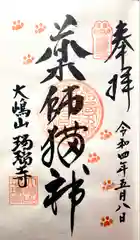 奉拝
令和四年五月八日
薬師猫神
大嶋山
瑞瑠寺